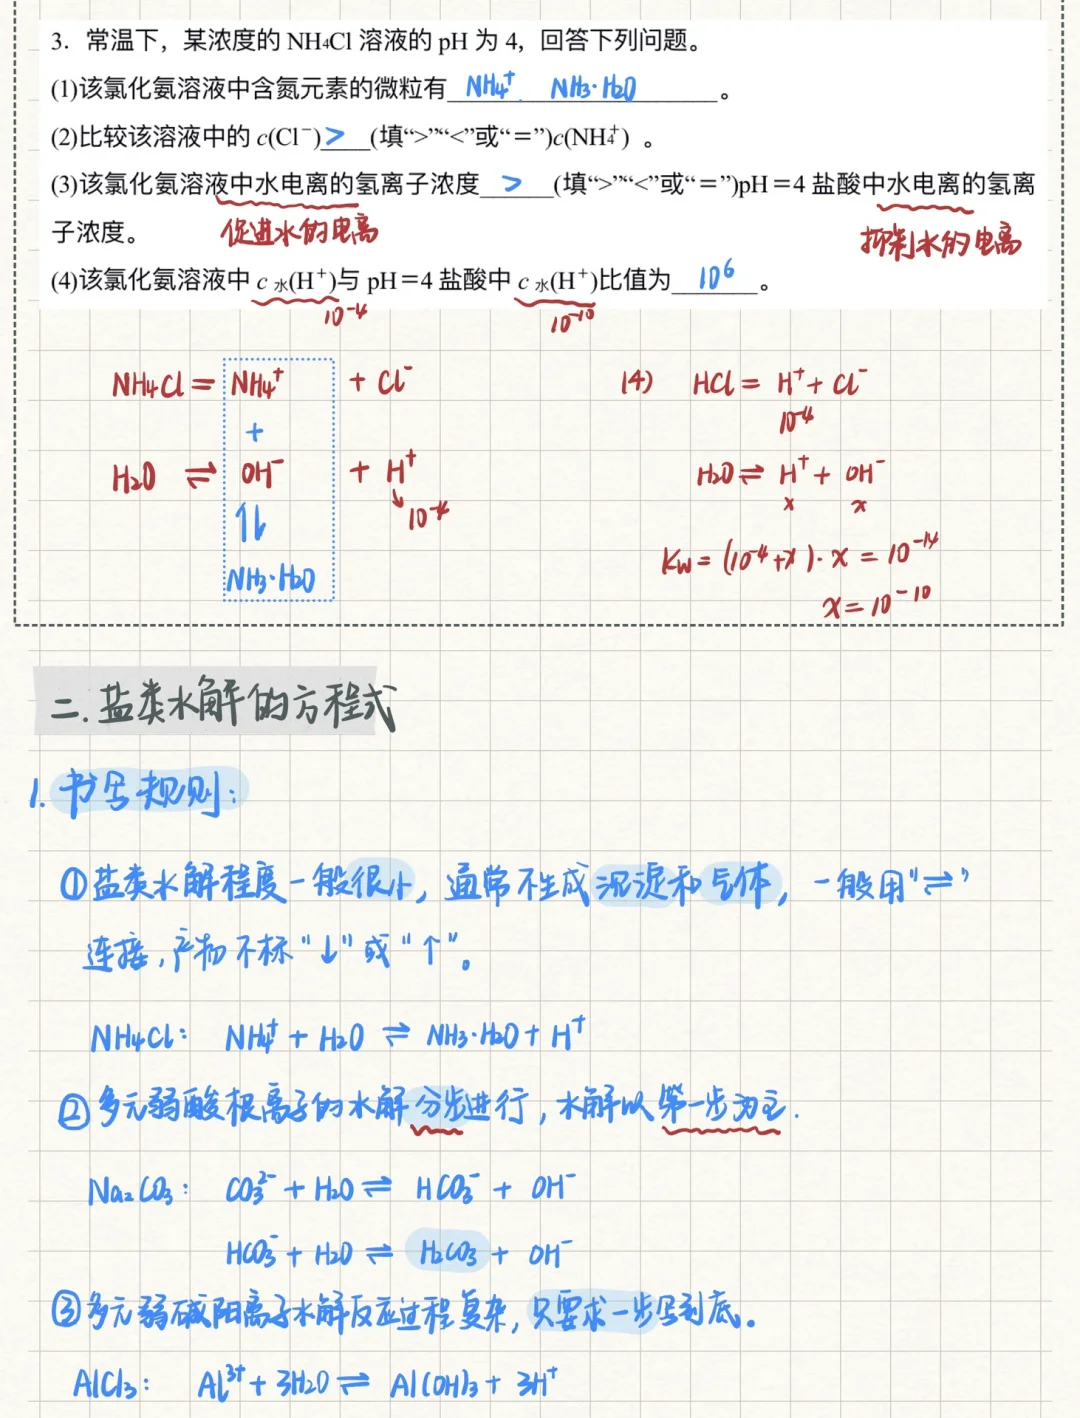 3．常温下，某浓度的 NH₄Cl 溶液的 pH 为 4，回答下列问题。
(1)该氯化氨溶液中含氮元素的微粒有 NH₄⁺ NH₃·H₂O 。
(2)比较该溶液中的 c(Cl⁻) > (填“>”“<”或“＝”)c(NH₄⁺) 。
(3)该氯化氨溶液中水电离的氢离子浓度 > (填“>”“<”或“＝”)pH＝4 盐酸中水电离的氢离
子浓度。 促进水的电离 抑制水的电离
(4)该氯化氨溶液中 c 水(H⁺)与 pH＝4 盐酸中 c 水(H⁺)比值为 10⁶ 。
10⁻⁴ 10⁻¹⁰
NH₄Cl = NH₄⁺ + Cl⁻
+
H₂O ⇌ OH⁻ + H⁺
10⁻⁴
⇅
NH₃·H₂O
(4) HCl = H⁺ + Cl⁻
10⁻⁴
H₂O ⇌ H⁺ + OH⁻
x x
Kw = (10⁻⁴+x)·x = 10⁻¹⁴
x = 10⁻¹⁰
二.盐类水解的方程式
1.书写规则：
①盐类水解程度一般很小，通常不生成沉淀和气体，一般用“⇌”
连接，产物不标“↓”或“↑”。
NH₄Cl： NH₄⁺ + H₂O ⇌ NH₃·H₂O + H⁺
②多元弱酸根离子的水解分步进行，水解以第一步为主.
Na₂CO₃： CO₃²⁻ + H₂O ⇌ HCO₃⁻ + OH⁻
HCO₃⁻ + H₂O ⇌ H₂CO₃ + OH⁻
③多元弱碱阳离子水解反应过程复杂，只要求一步写到底。
AlCl₃： Al³⁺ + 3H₂O ⇌ Al(OH)₃ + 3H⁺